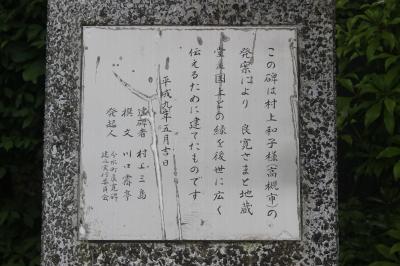 この碑は村上和子様(高槻市)の
発案により 良寛さまと地蔵
堂並国上との縁を後世に広く
伝えるために建てたものです
平成九年五月吉日
建碑者 村上三島
撰文 川口霽亭
発起人 分水町良寛碑
建立実行委員会